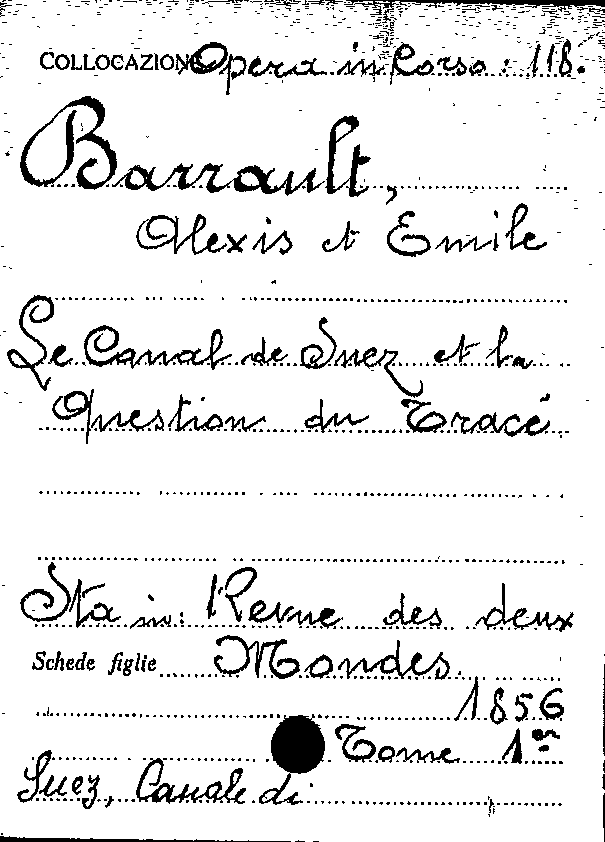 COLLOCAZIONE Opera in Corso: 118.
Barrault,
Alexis et Emile
Le Canal de Suez et la
Question du Tracé
Sta in: Revue des deux
Schede figlie Mondes.
1856
Tome 1er
Suez, Canale di